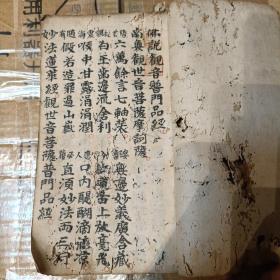 佛說觀音普門品經
南無觀世音菩薩摩訶薩
六萬餘言七軸裝 無邊妙義廣含藏
白玉齒邊流舍利 紅蓮舌上放毫光
喉中甘露涓涓潤 口內醍醐滴滴凉
假若造罪過山嶽 直須妙法兩三行
妙法蓮華經觀世音菩薩普門品經